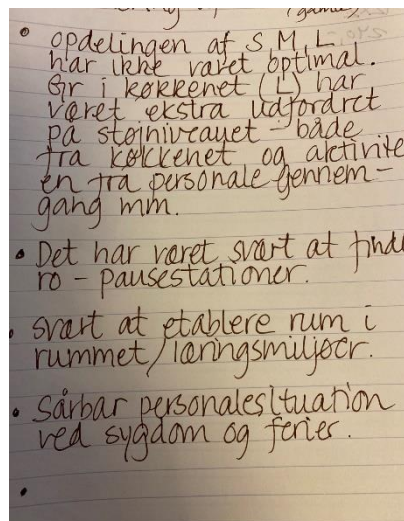 (gamle)
• opdelingen af S, M, L
har ikke været optimal.
Gr i køkkenet (L) har
været ekstra udfordret
på støjniveauet - både
fra køkkenet og aktivite
en fra personale gennem-
gang mm.
• Det har været svært at finde
ro - pausestationer.
• svært at etablere rum i
rummet/læringsmiljøer.
• Sårbar personalesituation
ved sygdom og ferier.
•